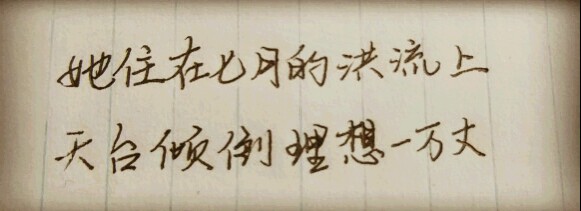 她住在七月的洪流上
天台倾倒理想一万丈